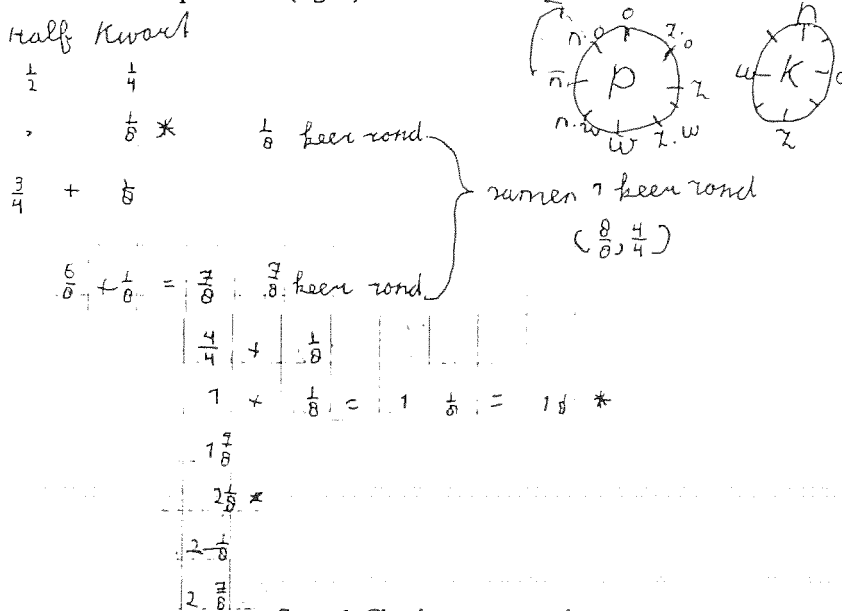 Half Kwart
1/2 1/4
, 1/8 * 1/8 keer rond
3/4 + 1/8
samen 1 keer rond
(8/8, 4/4)
6/8 + 1/8 = 7/8 7/8 keer rond
4/4 + 1/8
1 + 1/8 = 1 1/8 = 1 8 *
1 7/8
2 1/8 *
2 - 1/8
2 7/8
n.o o z.o
n P z
n.w w z.w
n
w K o
z